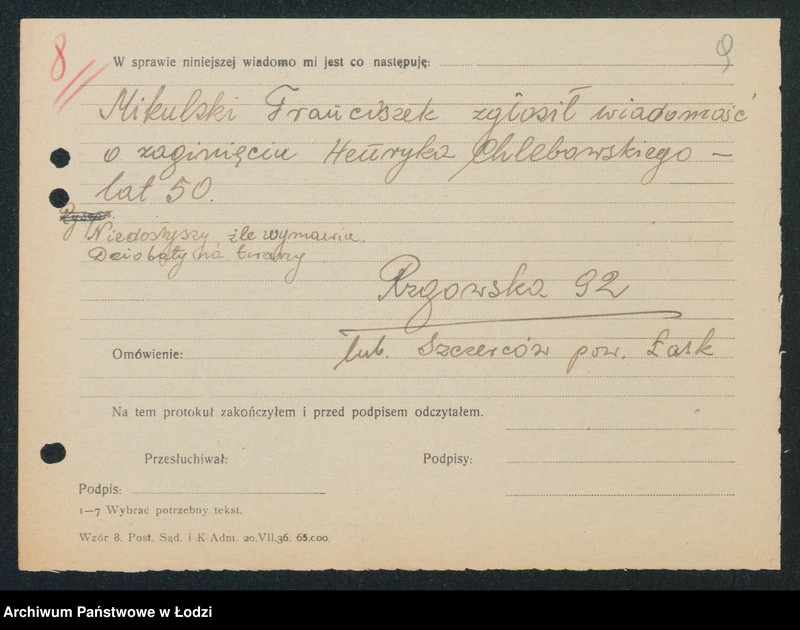 8 9
W sprawie niniejszej wiadomo mi jest co następuję:
Mikulski Franciszek zgłosił wiadomość
o zaginięciu Henryka Chlebowskiego –
lat 50.
Niedosłyszy źle wymawia.
Dziobaty na twarzy
Rzgowska 92
Omówienie:
lub. Szczerców pow. Łask
Na tem protokuł zakończyłem i przed podpisem odczytałem.
Przesłuchiwał: Podpisy:
Podpis:
1—7 Wybrać potrzebny tekst.
Wzór 8. Post. Sąd. i K-Adm. 20.VII.36. 65.000.
Archiwum Państwowe w Łodzi